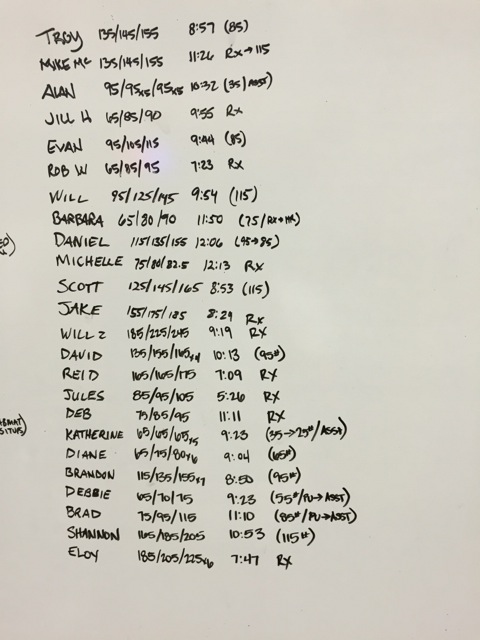 TROY 135/145/155 8:57 (85)
MIKE MC 135/145/155 11:26 RX→115
ALAN 95/95x5/95x5 10:32 (35/ASST)
JILL H 65/85/90 9:55 RX
EVAN 95/105/115 9:44 (85)
ROB W 65/85/95 7:23 RX
WILL 95/125/145 9:54 (115)
BARBARA 65/80/90 11:50 (75/RX→HR)
DANIEL 115/135/155 12:06 (95→85)
MICHELLE 75/80/82.5 12:13 RX
SCOTT 125/145/165 8:53 (115)
JAKE 155/175/185 8:29 RX
WILL Z 185/225/245 9:19 RX
DAVID 135/155/165x4 10:13 (95#)
REID 165/165/175 7:09 RX
JULES 85/95/105 5:26 RX
DEB 75/85/95 11:11 RX
KATHERINE 65/65/65x5 9:23 (35→25#/ASST)
DIANE 65/75/80x6 9:04 (65#)
BRANDON 115/135/155x7 8:50 (95#)
DEBBIE 65/70/75 9:23 (55#/PU→ASST)
BRAD 75/95/115 11:10 (85#/PU→ASST)
SHANNON 165/185/205 10:53 (115#)
ELOY 185/205/225x6 7:47 RX